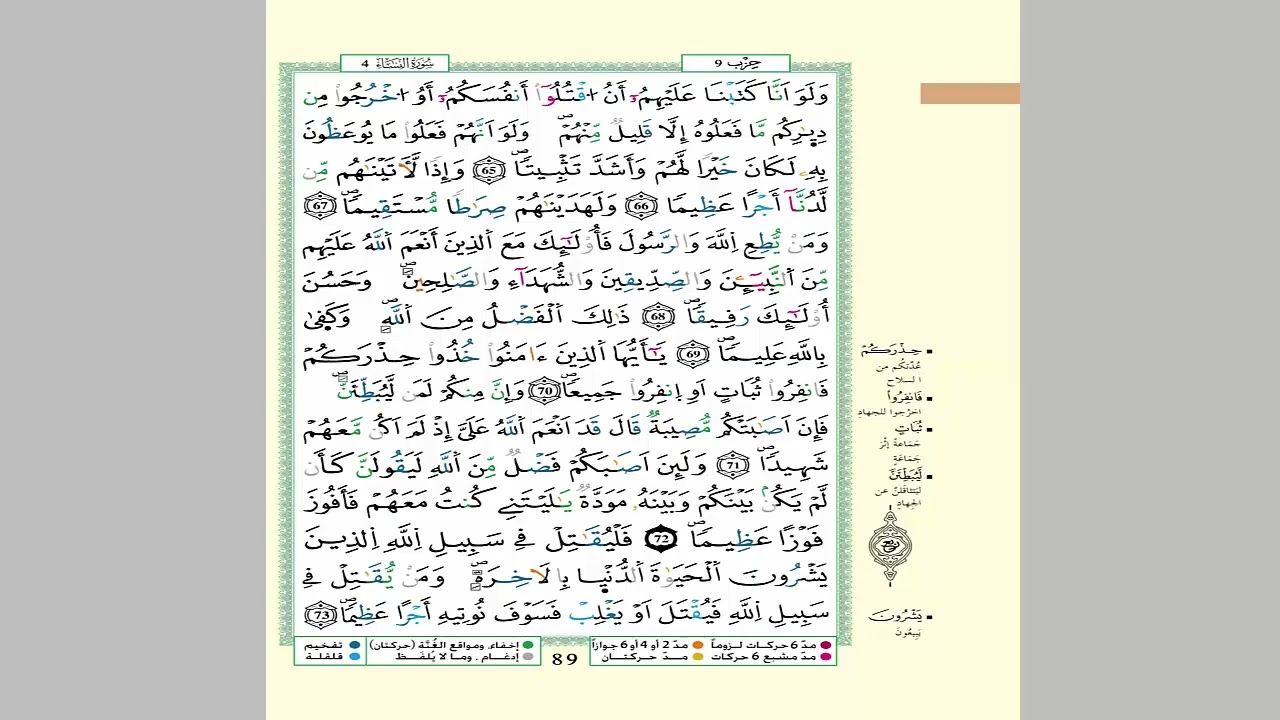 سُورَةُ النِّسَاءِ 4
حِزْب 9
وَلَوَ اَنَّا كَتَبْنَا عَلَيْهِمُۥٓ أَنُ اُ۟قْتُلُوٓاْ أَنفُسَكُمُۥٓ أَوُ اُ۟خْرُجُواْ مِن
دِيٰ۪رِكُم مَّا فَعَلُوهُ إِلَّا قَلِيلٞ مِّنْهُمْۖ وَلَوَ اَنَّهُمْ فَعَلُواْ مَا يُوعَظُونَ
بِهِۦ لَكَانَ خَيْرٗا لَّهُمْ وَأَشَدَّ تَثْبِيتٗاۖ 65 وَإِذٗا لَّأٓتَيْنَٰهُم مِّن
لَّدُنَّآ أَجْرًا عَظِيمٗا 66 وَلَهَدَيْنَٰهُمْ صِرَٰطٗا مُّسْتَقِيمٗاۖ 67
وَمَنْ يُّطِعِ اِ۬للَّهَ وَالرَّسُولَ فَأُوْلَٰٓئِكَ مَعَ اَ۬لذِينَ أَنْعَمَ اَ۬للَّهُ عَلَيْهِم
مِّنَ اَ۬لنَّبِيٓـِٕۧنَ وَالصِّدِّيقِينَ وَالشُّهَدَآءِ وَالصَّٰلِحِينَۖ وَحَسُنَ
أُوْلَٰٓئِكَ رَفِيقٗاۖ 68 ذَٰلِكَ اَ۬لْفَضْلُ مِنَ اَ۬للَّهِۖ وَكَف۪ىٰ
بِاللَّهِ عَلِيمٗاۖ 69 يَٰٓأَيُّهَا اَ۬لذِينَ ءَامَنُواْ خُذُواْ حِذْرَكُمْ
فَانفِرُواْ ثُبَاتٍ اَوِ اِ۪نفِرُواْ جَمِيعٗاۖ 70 وَإِنَّ مِنكُمْ لَمَن لَّيُبَطِّئَنَّۖ
فَإِنَ اَصَٰبَتْكُم مُّصِيبَةٞ قَالَ قَدَ اَنْعَمَ اَ۬للَّهُ عَلَيَّ إِذْ لَمَ اَكُن مَّعَهُمْ
شَهِيدٗاۖ 71 وَلَئِنَ اَصَٰبَكُمْ فَضْلٞ مِّنَ اَ۬للَّهِ لَيَقُولَنَّ كَأَن
لَّمْ يَكُنۢ بَيْنَكُمْ وَبَيْنَهُۥ مَوَدَّةٞ يَٰلَيْتَنِے كُنتُ مَعَهُمْ فَأَفُوزَ
فَوْزًا عَظِيمٗاۖ 72 فَلْيُقَٰتِلْ فِے سَبِيلِ اِ۬للَّهِ اِ۬لذِينَ
يَشْرُونَ اَ۬لْحَيَوٰةَ اَ۬لدُّنْي۪ا بِالَاخِرَةِۖ وَمَنْ يُّقَٰتِلْ فِے
سَبِيلِ اِ۬للَّهِ فَيُقْتَلَ اَوْ يَغْلِبْ فَسَوْفَ نُوتِيهِ أَجْرًا عَظِيمٗاۖ 73
▪ حِذْرَكُمْ
عُدّتكُم من
السلاح
▪ فَانفِرُواْ
اخرجوا للجهادِ
▪ ثُبَاتٍ
جَماعةً إثْرَ
جَمَاعَةٍ
▪ لَّيُبَطِّئَنَّ
ليَتثاقَلنَّ عن
الجِهادِ
ربع
▪ يَشْرُونَ
يَبِيعُونَ
مدّ 6 حركات لـزوماً ● مدّ 2 أو 4 أو 6 جوازاً
مدّ مشبع 6 حركات ● مـدّ حركتـــان
89
إخفاء، ومواقع الغُنَّة (حركتان) ● تفخيم
إدغـام ، وما لا يُلفَـظ ● قلقلة